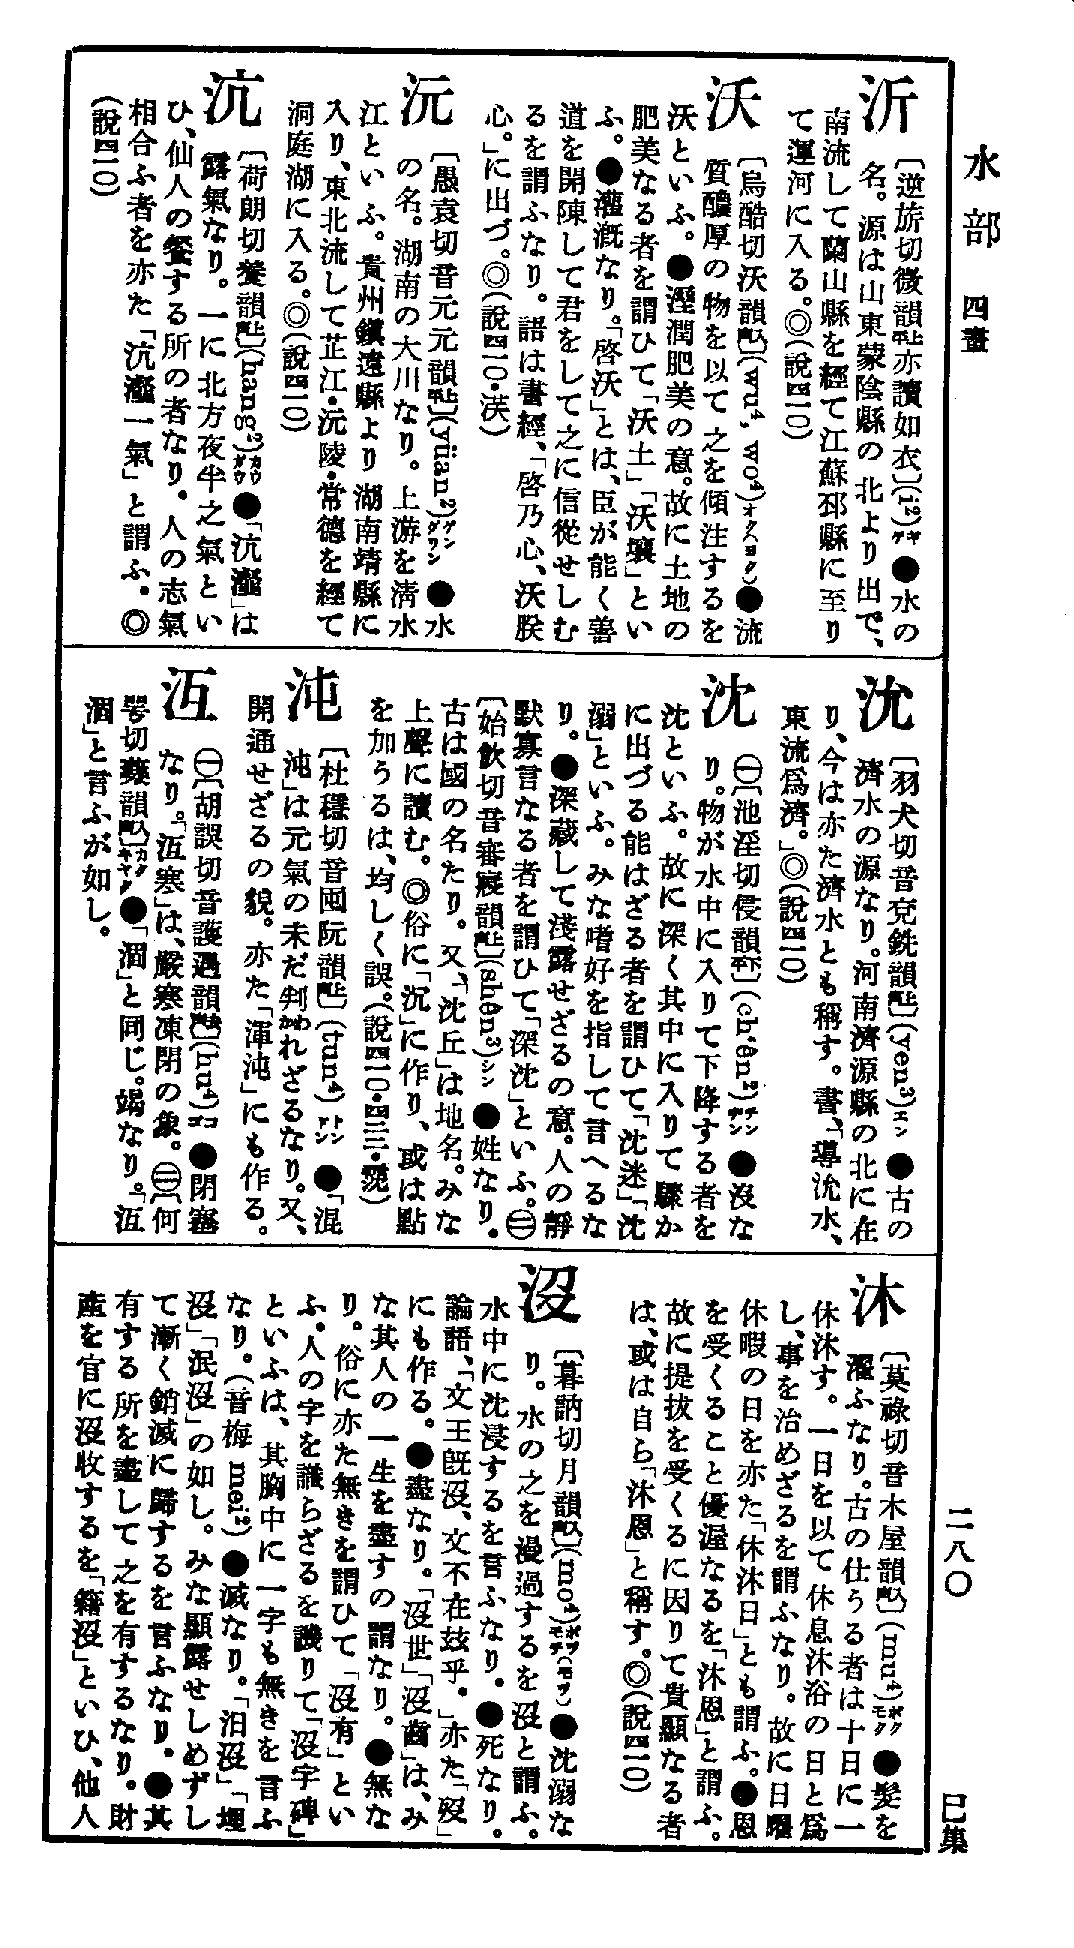 水部 四畫
二八〇
巳集
沂
〔逆旂切微韻亦讀如衣〕(i²)●水の
名。源は山東蒙陰縣の北より出で、
南流して蘭山縣を經て江蘇邳縣に至り
て運河に入る。◎(說四一〇)
沃
〔烏酷切沃韻〕(wu⁴, wo⁴)オク(ヨク)●流
質醲厚の物を以て之を傾注するを
沃といふ。●溼潤肥美の意。故に土地の
肥美なる者を謂ひて「沃土」「沃壤」とい
ふ。●灌漑なり。「啓沃」とは、臣が能く善
道を開陳して君をして之に信從せしむ
るを謂ふなり。語は書經、「啓乃心、沃朕
心。」に出づ。◎(說四一〇・渶)
沅
〔愚袁切音元元韻〕(yüan²)ゲングワン●水
の名。湖南の大川なり。上游を淸水
江といふ。貴州鎭遠縣より湖南靖縣に
入り、東北流して芷江・沅陵・常德を經て
洞庭湖に入る。◎(說四一〇)
沆
〔荷朗切養韻〕(hang²)カウガウ●「沆瀣」は
露氣なり。一に北方夜半之氣とい
ひ、仙人の餐する所の者なり。人の志氣
相合ふ者を亦た「沆瀣一氣」と謂ふ。◎
(說四一〇)
沇
〔羽犬切音兗銑韻〕(yen³)エン●古の
濟水の源なり。河南濟源縣の北に在
り、今は亦た濟水とも稱す。書、「導沇水、
東流爲濟。」◎(說四一〇)
沈
㊀〔池淫切侵韻〕(ch'ên²)チンヂン●沒な
り。物が水中に入りて下降する者を
沈といふ。故に深く其中に入りて驟か
に出づる能はざる者を謂ひて「沈迷」「沈
溺」といふ。みな嗜好を指して言へるな
り。●深藏して淺露せざるの意。人の靜
默寡言なる者を謂ひて「深沈」といふ。㊁
〔始飮切音審寢韻〕(shên³)シン●姓なり。
古は國の名たり。又、「沈丘」は地名。みな
上聲に讀む。◎俗に「沉」に作り、或は點
を加うるは、均しく誤。(說四一〇・四三三・霃)
沌
〔杜穩切音囤阮韻〕(tun⁴)トンドン●「混
沌」は元氣の未だ判われざるなり。又、
開通せざるの貌。亦た「渾沌」にも作る。
沍
㊀〔胡誤切音護遇韻〕(hu⁴)コゴ●閉塞
なり。「沍寒」は、嚴寒凍閉の象。㊁〔何
各切藥韻〕カクキヤク●「涸」と同じ。竭なり。「沍
涸」と言ふが如し。
沐
〔莫祿切音木屋韻〕(mu⁴)ボクモク●髮を
濯ふなり。古の仕うる者は十日に一
休沐す。一日を以て休息沐浴の日と爲
し、事を治めざるを謂ふなり。故に日曜
休暇の日を亦た「休沐日」とも謂ふ。●恩
を受くること優渥なるを「沐恩」と謂ふ。
故に提拔を受くるに因りて貴顯なる者
は、或は自ら「沐恩」と稱す。◎(說四一〇)
沒
〔暮訥切月韻〕(mo⁴)ボツモチ(モツ)●沈溺な
り。水の之を漫過するを沒と謂ふ。
水中に沈浸するを言ふなり。●死なり。
論語、「文王旣沒、文不在玆乎。」亦た「歿」
にも作る。●盡なり。「沒世」「沒齒」は、み
な其人の一生を盡すの謂なり。●無な
り。俗に亦た無きを謂ひて「沒有」とい
ふ。人の字を識らざるを譏りて「沒字碑」
といふは、其胸中に一字も無きを言ふ
なり。(音梅 mei²)●滅なり。「汨沒」「堙
沒」「泯沒」の如し。みな顯露せしめずし
て漸く銷滅に歸するを言ふなり。●其
有する所を盡して之を有するなり。財
產を官に沒收するを「籍沒」といひ、他人